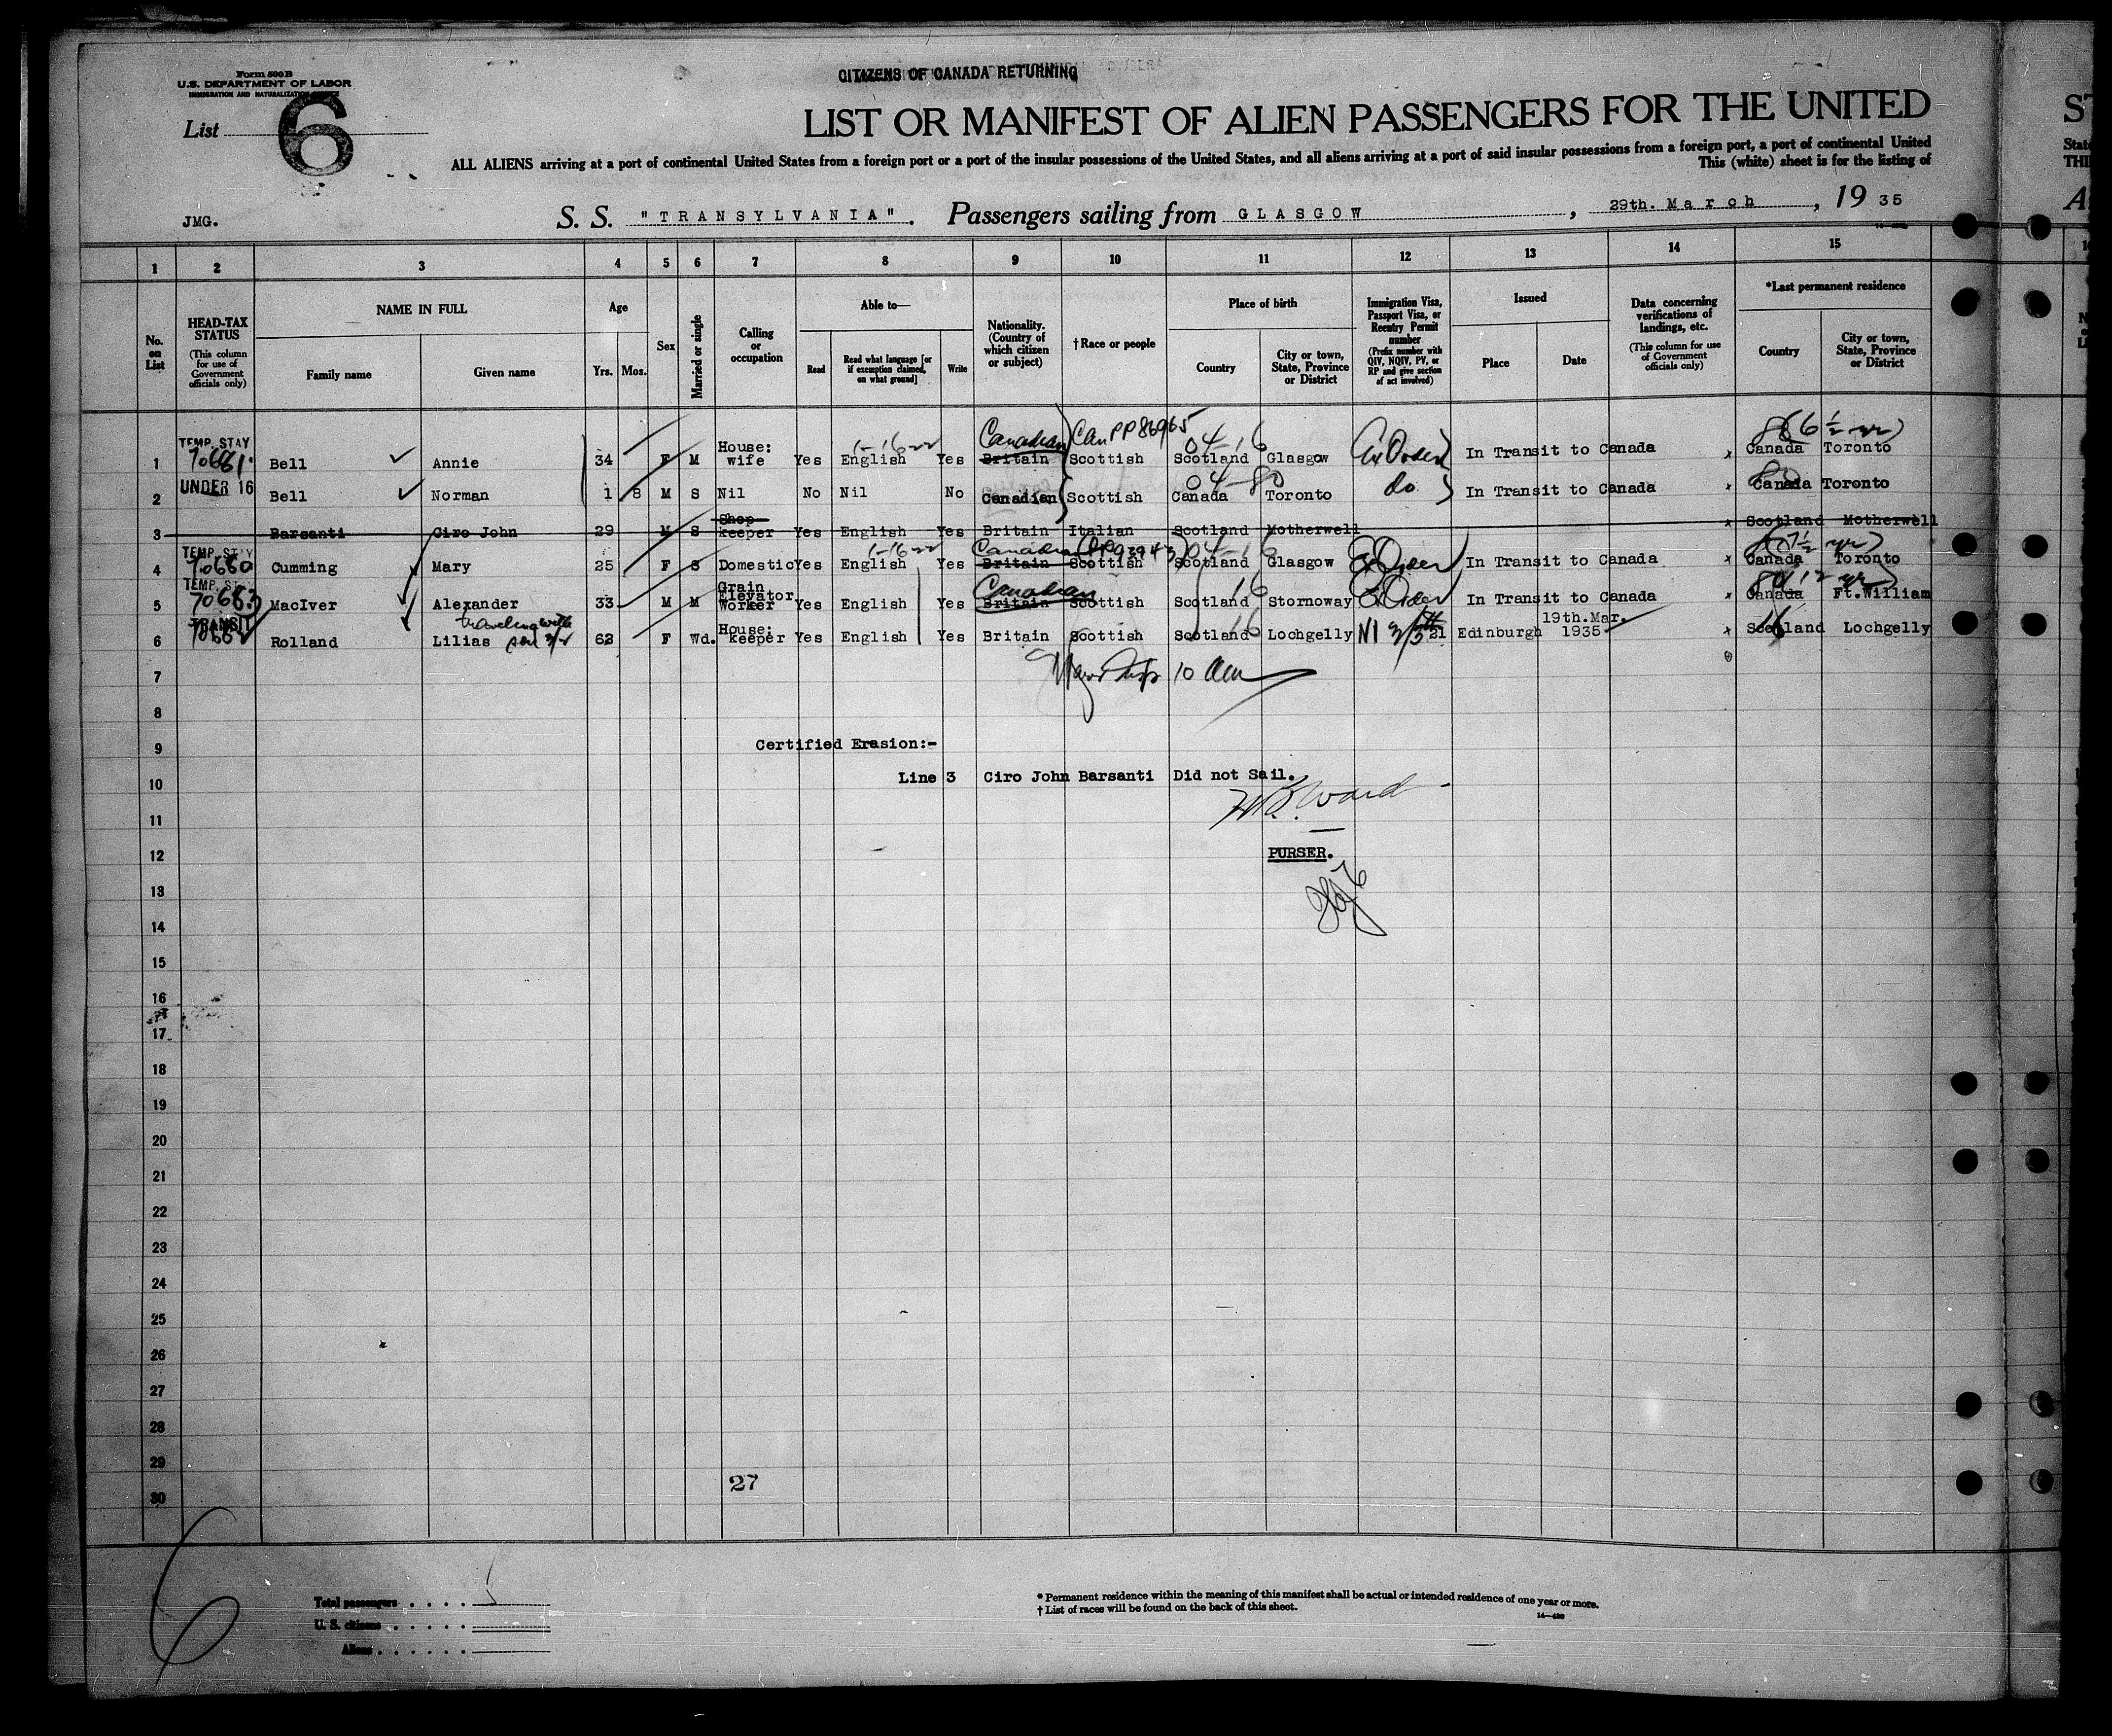 Form 500B
U.S. DEPARTMENT OF LABOR
IMMIGRATION AND NATURALIZATION SERVICE
CITIZENS OF CANADA RETURNING
List 6
LIST OR MANIFEST OF ALIEN PASSENGERS FOR THE UNITED
ST
ALL ALIENS arriving at a port of continental United States from a foreign port or a port of the insular possessions of the United States, and all aliens arriving at a port of said insular possessions from a foreign port, a port of continental United
State
This (white) sheet is for the listing of
THI
JMG.
S. S. "TRANSYLVANIA". Passengers sailing from GLASGOW, 29th. March, 19 35
1 2 3 4 5 6 7 8 9 10 11 12 13 14 15
No. on List
HEAD-TAX STATUS
(This column for use of Government officials only)
NAME IN FULL
Family name
Given name
Age
Yrs.
Mos.
Sex
Married or single
Calling or occupation
Able to—
Read
Read what language [or if exemption claimed, on what ground]
Write
Nationality. (Country of which citizen or subject)
†Race or people
Place of birth
Country
City or town, State, Province or District
Immigration Visa, Passport Visa, or Reentry Permit number
(Prefix number with QIV, NQIV, PV, or RP and give section of act involved)
Issued
Place
Date
Data concerning verifications of landings, etc.
(This column for use of Government officials only)
*Last permanent residence
Country
City or town, State, Province or District
TEMP. STAY 1-16-22 Canadian Can PP 86965 04-16 (6½ yr)
1 70681 Bell Annie 34 F M House: wife Yes English Yes Britain Scottish Scotland Glasgow In Transit to Canada x Canada Toronto
UNDER 16 04-80
2 Bell Norman 1 8 M S Nil No Nil No Canadian Scottish Canada Toronto do. In Transit to Canada x Canada Toronto
3 Barsanti Ciro John 29 M S Shop keeper Yes English Yes Britain Italian Scotland Motherwell x Scotland Motherwell
TEMP. STAY 1-16-22 Canadian 04-16
4 70680 Cumming Mary 25 F S Domestic Yes English Yes Britain Scottish Scotland Glasgow In Transit to Canada x Canada Toronto
TEMP. STAY Canadian 16
5 70683 MacIver Alexander 33 M M Grain Elevator Worker Yes English Yes Britain Scottish Scotland Stornoway In Transit to Canada x Canada Ft.William
TRANSIT traveling with
6 Rolland Lilias 62 F Wd. House: keeper Yes English Yes Britain Scottish Scotland Lochgelly Edinburgh 19th.Mar. 1935 x Scotland Lochgelly
7
8
9 Certified Erasion:-
10 Line 3 Ciro John Barsanti Did not Sail.
Ward
11
12 PURSER.
13
14
15
16
17
18
19
20
21
22
23
24
25
26
27
28
29
27
30
6
Total passengers
U. S. citizens
Aliens
* Permanent residence within the meaning of this manifest shall be actual or intended residence of one year or more.
† List of races will be found on the back of this sheet.